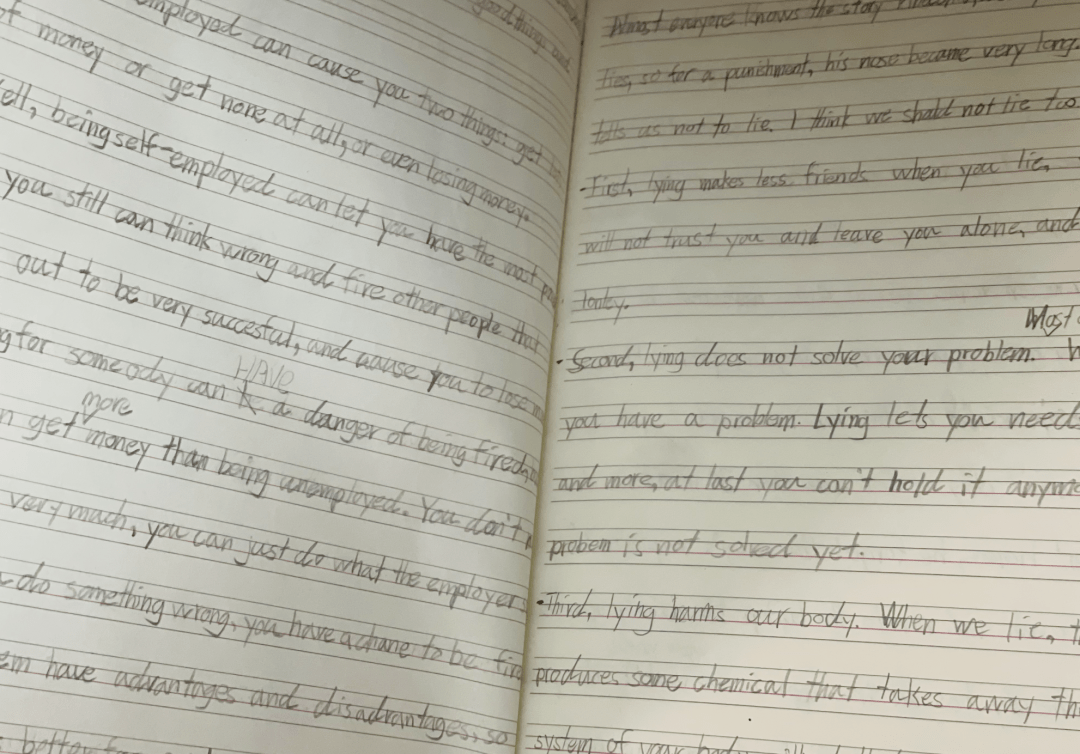 good things and
employed can cause you two things: get
of money or get none at all, or even losing money.
being self-employed can let you have the most
you still can think wrong and fire other people that
out to be very succesful, and cause you to lose
for someody can HAVE a danger of being fired,
get more money than being unemployed. You don't
very much, you can just do what the employers
do something wrong, you have a chane to be fire
have advantages and disadvantages, so
Almost everyone knows the story
lies, so for a punishment, his nose became very long.
tells us not to lie. I think we should not lie too
- First, lying makes less friends when you lie,
will not trust you and leave you alone, and
lonley.
Most
- Second, lying does not solve your problem.
you have a problem. Lying lets you need
and more, at last you can't hold it anymo
probem is not solved yet.
- Third, lying harms our body. When we lie,
produces some chemical that takes away th
system of your body